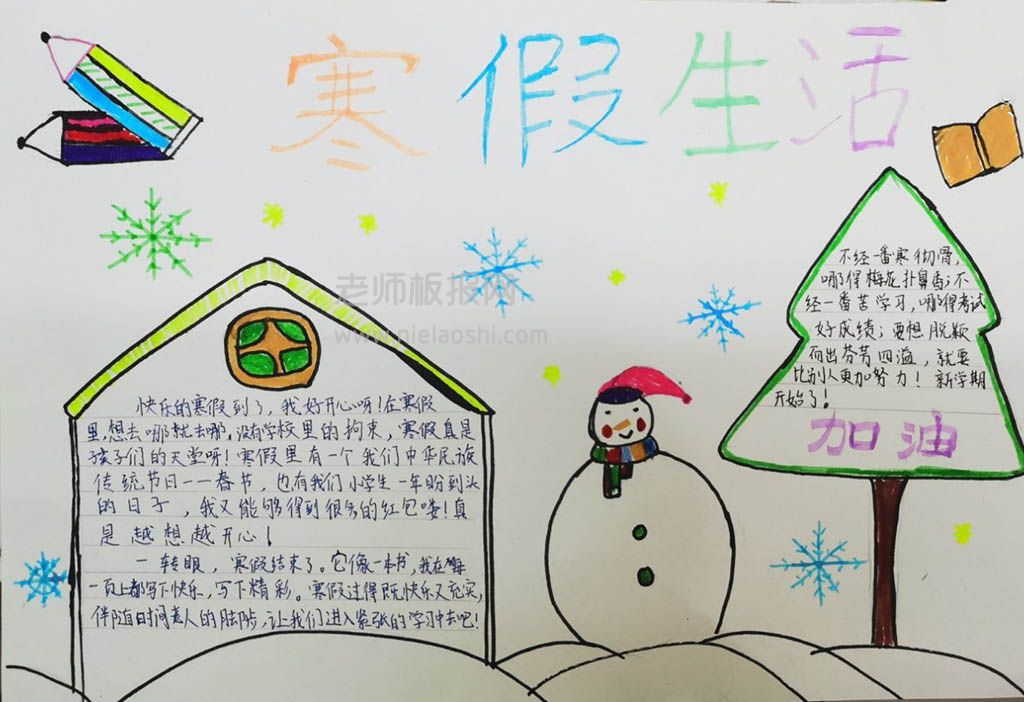 寒假生活
老师板报网
www.nielaoshi.com
快乐的寒假到了，我好开心呀！在寒假
里，想去哪就去哪，没有学校里的拘束，寒假真是
孩子们的天堂呀！寒假里有一个我们中华民族
传统节日——春节，也有我们小学生一年盼到头
的日子，我又能够得到很多的红包喽！真
是越想越开心！
一转眼，寒假结束了。它像一本书，我在每
一页上都写下快乐，写下精彩。寒假过得既快乐又充实，
伴随时间老人的脚步，让我们进入紧张的学习中去吧！
不经一番寒彻骨，
哪得梅花扑鼻香；不
经一番苦学习，哪得考试
好成绩；要想脱颖
而出芬芳四溢，就要
比别人更加努力！新学期
开始了！
加油